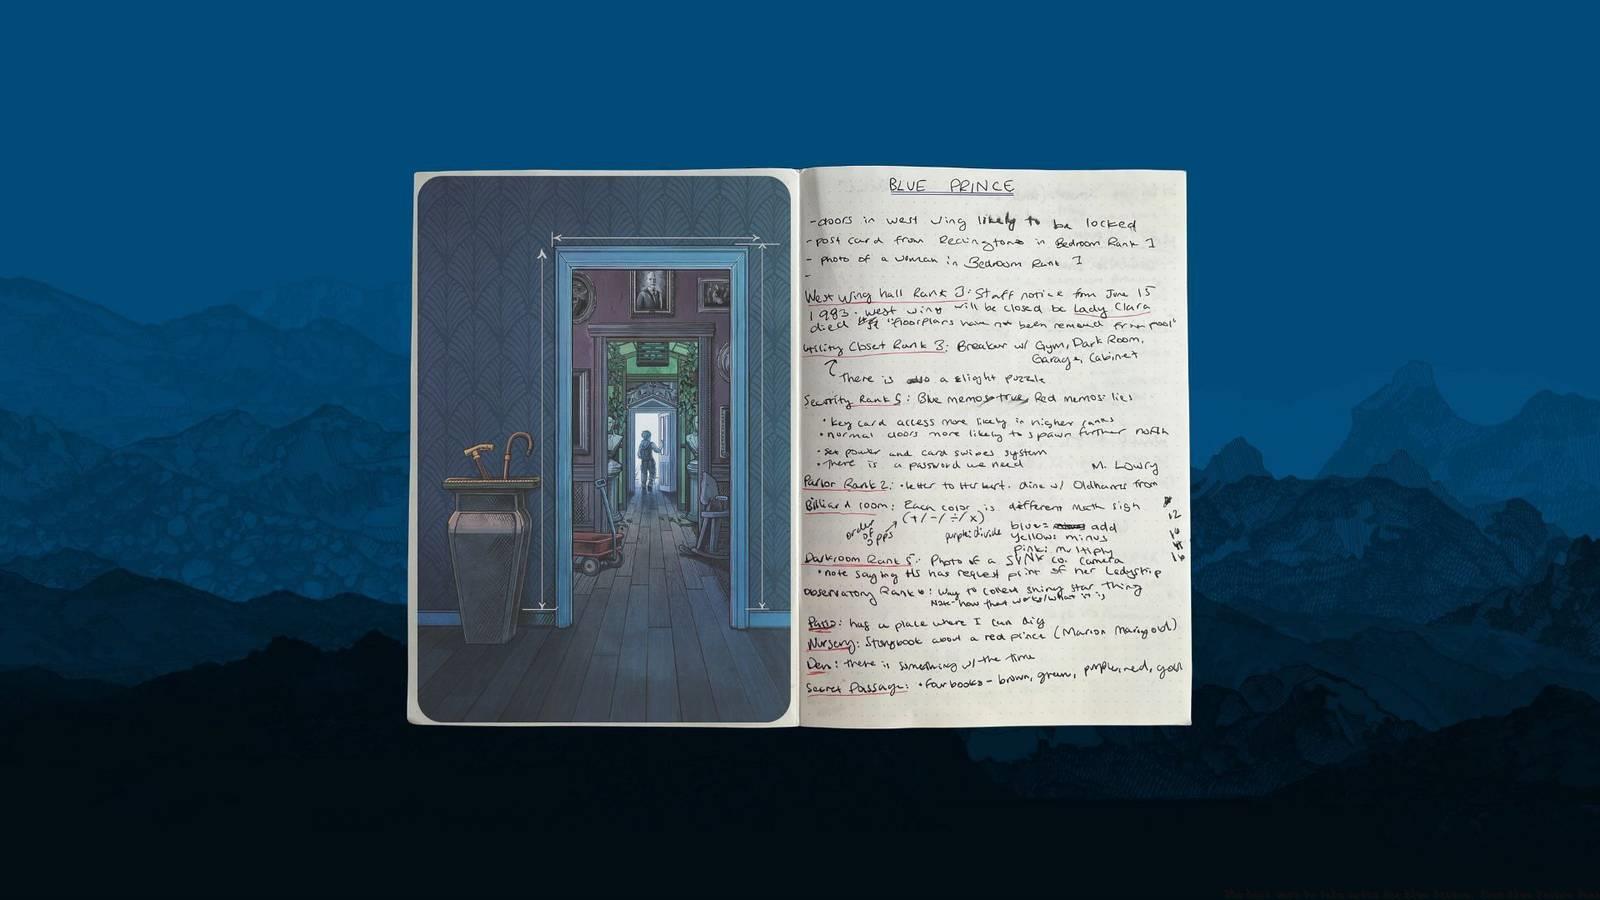 BLUE PRINCE
-doors in west wing likely to be locked
-post card from in Bedroom Rank 1
- photo of a woman in Bedroom Rank 1
-
West Wing hall Rank 3: Staff notice from June 15
1983. west wing will be closed bc Lady Clara
died "floorplans have not been removed from pool"
Utility Closet Rank 3: Breaker w/ Gym, Dark Room,
Garage, Cabinet
There is a slight puzzle
Security Rank 5: Blue memos true, Red memos: lies
• key card access more likely in higher ranks
• normal doors more likely to spawn further north
• set power and card swipes system
• There is a password we need M. Lowry
Parlor Rank 2: • letter to Herbert. dine w/ Oldhams from
Billiard room: Each color is different math sign
(+/-/÷/x)
order of opps
purple: divide
blue= add
yellow: minus
pink: multiply
12
Darkroom Rank 5: Photo of a SVNK co. camera
• note saying HS has request print of her Ladyship
Observatory Rank 6: way to collect shiny star thing
Note: how that works/what it is
Patio: has a place where I can dig
Nursery: Storybook about a red prince (Marion Marigold)
Den: there is something w/ the time
Secret Passage: • four books - brown, green, purple, red, gold